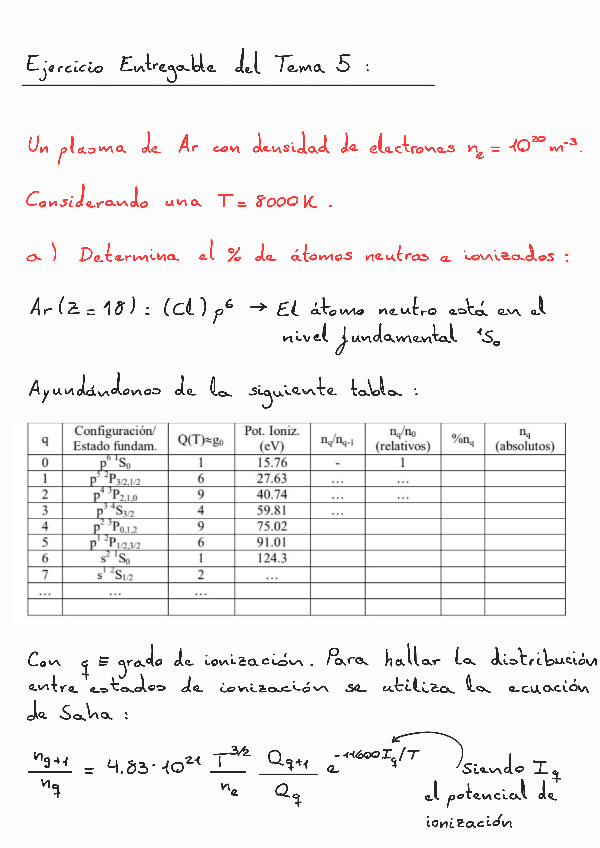 Ejercicio Entregable del Tema 5 :
Un plasma de Ar con densidad de electrones nₑ = 10²⁰ m⁻³.
Considerando una T = 8000 K .
a) Determina el % de átomos neutros e ionizados :
Ar (Z = 18) : (Cl) p⁶ → El átomo neutro está en el
nivel fundamental ¹S₀
Ayundándonos de la siguiente tabla :
q | Configuración/ Estado fundam. | Q(T)≈g₀ | Pot. Ioniz. (eV) | n_q/n_{q-1} | n_q/n₀ (relativos) | %n_q | n_q (absolutos)
0 | p⁶ ¹S₀ | 1 | 15.76 | - | 1
1 | p⁵ ²P_{3/2,1/2} | 6 | 27.63 | … | …
2 | p⁴ ³P_{2,1,0} | 9 | 40.74 | … | …
3 | p³ ⁴S_{3/2} | 4 | 59.81 | …
4 | p² ³P_{0,1,2} | 9 | 75.02
5 | p¹ ²P_{1/2,3/2} | 6 | 91.01
6 | s² ¹S₀ | 1 | 124.3
7 | s¹ ²S_{1/2} | 2 | …
… | … | …
Con q ≡ grado de ionización. Para hallar la distribución
entre estados de ionización se utiliza la ecuación
de Saha :
n_{q+1}/n_q = 4.83·10²¹ T^{3/2}/nₑ Q_{q+1}/Q_q e^{-11600 I_q/T} siendo I_q
el potencial de
ionización